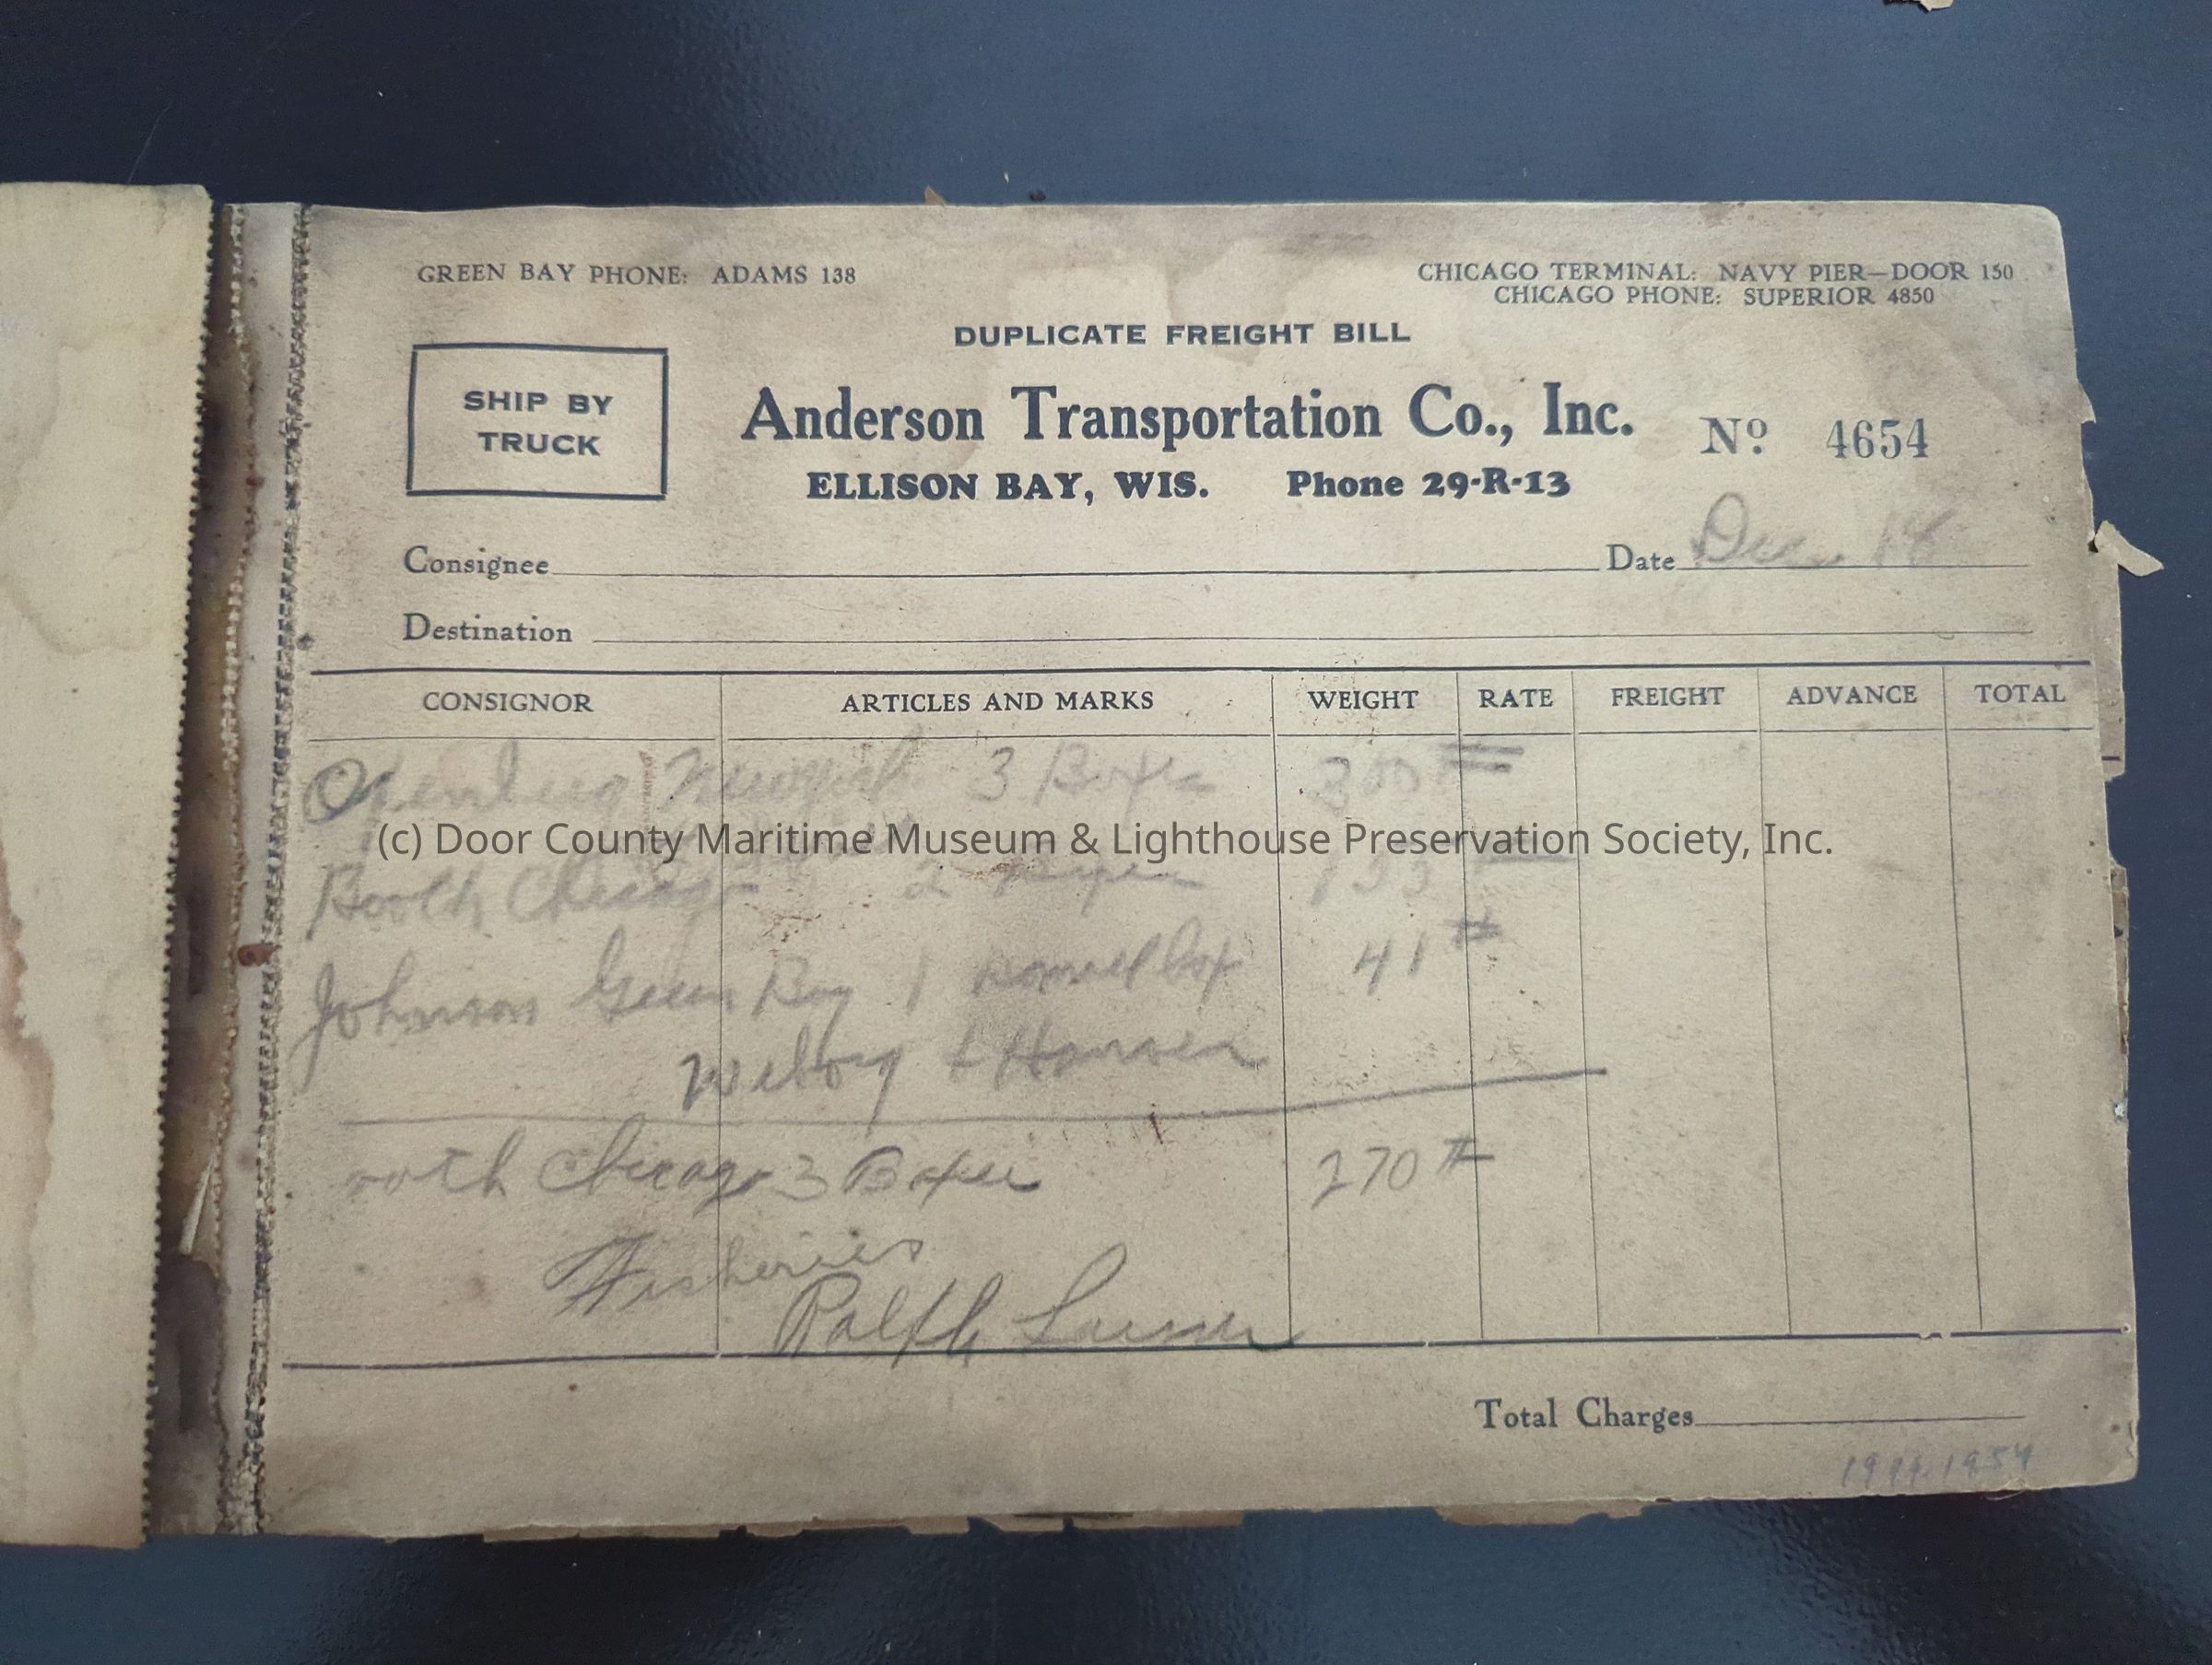 GREEN BAY PHONE: ADAMS 138
CHICAGO TERMINAL: NAVY PIER—DOOR 150
CHICAGO PHONE: SUPERIOR 4850
DUPLICATE FREIGHT BILL
SHIP BY
TRUCK
Anderson Transportation Co., Inc.
Nº 4654
ELLISON BAY, WIS. Phone 29-R-13
Consignee
Date Dec 18
Destination
CONSIGNOR ARTICLES AND MARKS WEIGHT RATE FREIGHT ADVANCE TOTAL
3 Boxes 300 #
(c) Door County Maritime Museum & Lighthouse Preservation Society, Inc.
Booth Chicago 2
Johnson Green Bay 1 Box 41 #
& Hansen
ooth Chicago 3 Boxes 270 #
Fisheries
Ralph
Total Charges